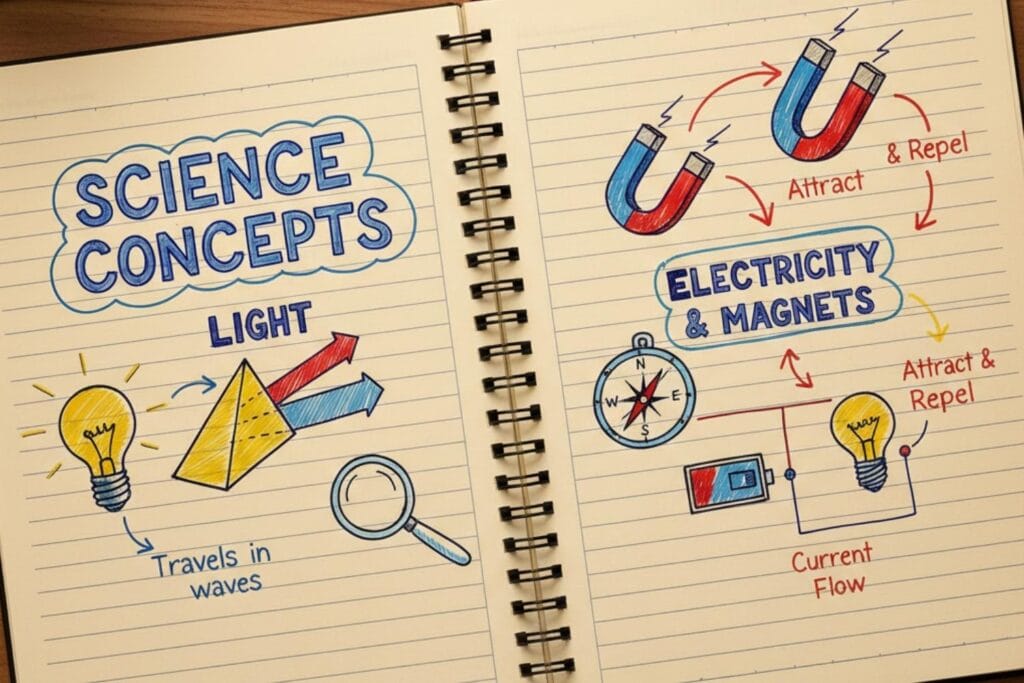 SCIENCE
CONCEPTS
LIGHT
Travels in
waves
Attract
& Repel
ELECTRICITY
& MAGNETS
N
W E
S
Attract &
Repel
Current
Flow